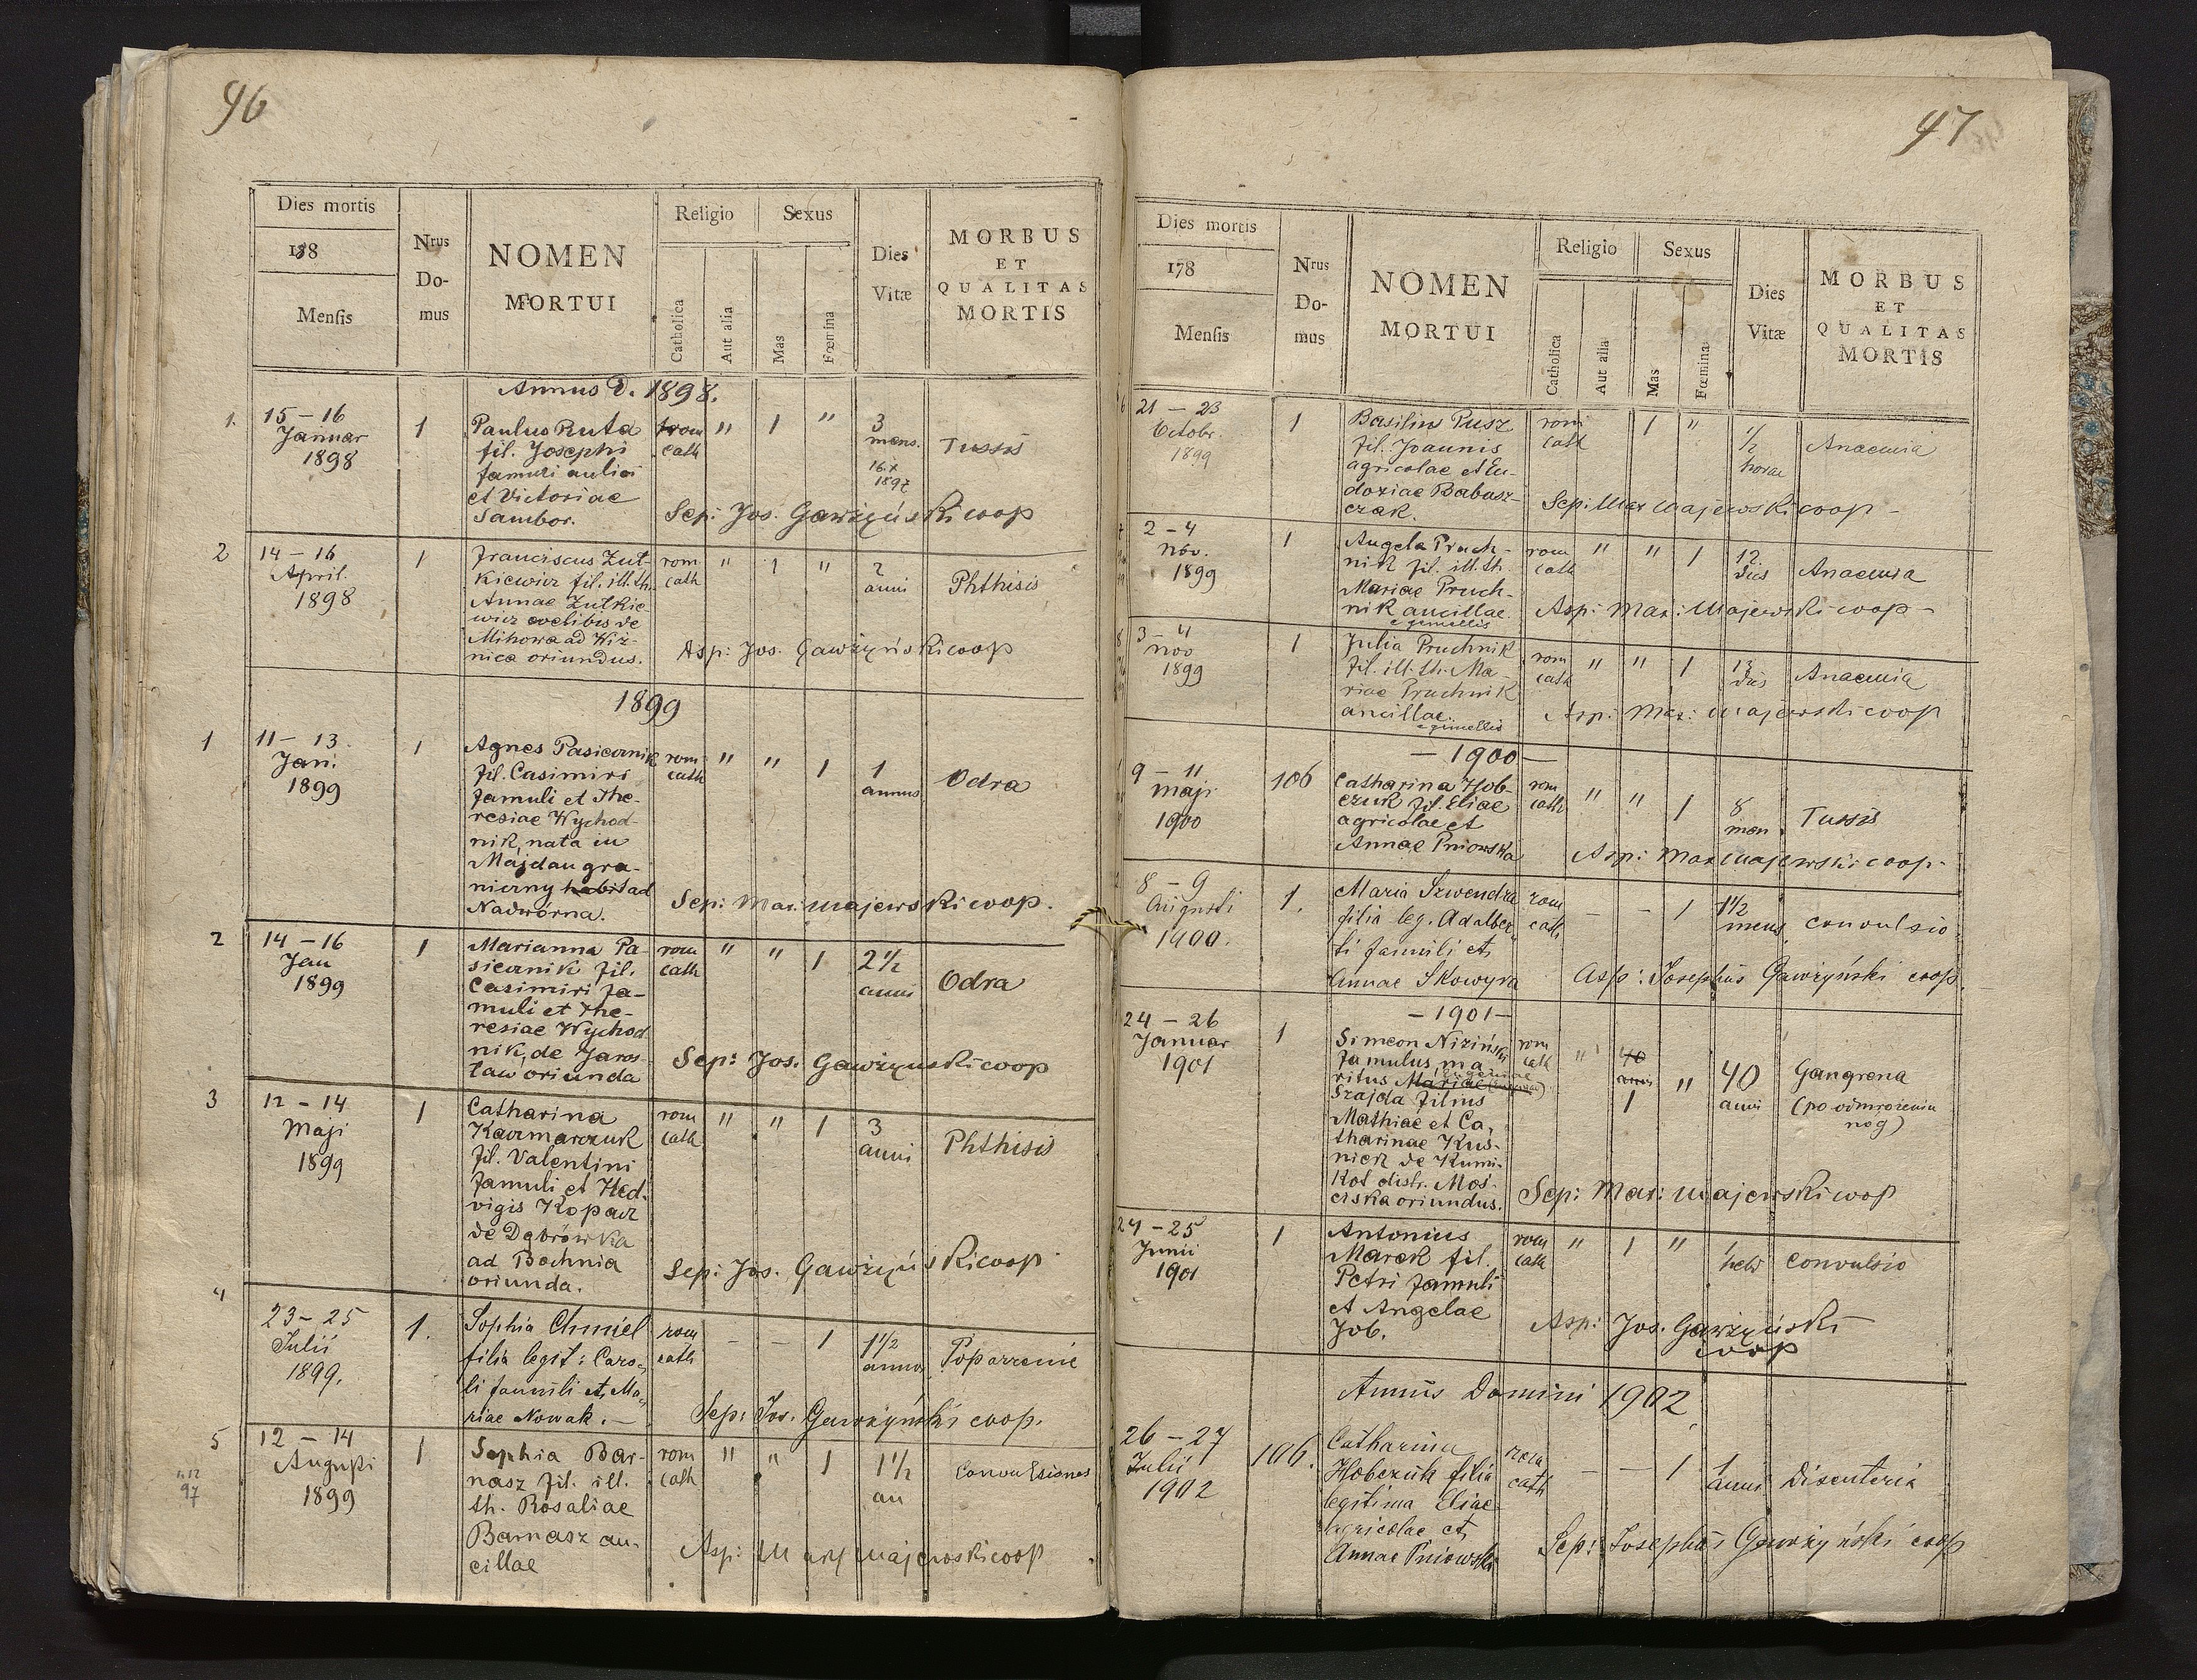 96
Dies mortis
Nrus Domus
NOMEN MORTUI
Religio
Sexus
Dies Vitæ
MORBUS ET QUALITAS MORTIS
138
Mensis
Catholica
Aut alia
Mas
Fœmina
Annus D. 1898.
1. 15 – 16 1 Paulus Ruta rom " 1 " 3
Januar fil. Josephi cath mens. Tussis
1898 famuli aulici 16.x
et Victoriae 1897
Sambor. Sep: Jos. Gawżyński coop
2 14 – 16 1 Franciscus Zut- rom " 1 " 2
April. kiewicz fil. ill. th. cath anni Phthisis
1898 Annae Zutkie-
wicz coelibis de
Mihowa ad Wiż-
nica oriundus. Asp: Jos. Gawżyński coop
1899
1 11 – 13 1 Agnes Pasiecznik rom " " 1 1
Jan. fil. Casimiri cath annus Odra
1899 famuli et The-
resiae Wychod-
nik, nata in
Majdan gra-
niczny habit ad
Nadwórna. Sep: Max: Majewski coop.
2 14 – 16 1 Marianna Pa- rom " " 1 2½
Jan siecznik fil. cath anni Odra
1899 Casimiri fa-
muli et The-
resiae Wychod
nik, de Jaros-
ław oriunda Sep: Jos. Gawżyński coop
3 12 – 14 1 Catharina rom " " 1 3
Maji Kaczmarczuk cath anni Phthisis
1899 fil. Valentini
famuli et Hed-
vigis Kopacz
de Dąbrówka
ad Bochnia
oriunda. Sep: Jos. Gawżyński coop
4 23 – 25 1. Sophia Chmiel rom – – 1 1½
Julii filia legit: Caro- cath anno Poparzenie
1899. li famuli et Ma-
riae Nowak. – Sep: Jos. Gawżyński coop.
5 12 – 14 1 Sophia Bar- rom " " 1 1½ Convulsiones
Augusti nasz fil. ill. cath an
1899 th. Rosaliae
97
Barnasz an-
cillae Asp: Max Majewski coop
47
Dies mortis
Nrus Domus
NOMEN MORTUI
Religio
Sexus
Dies Vitæ
MORBUS ET QUALITAS MORTIS
178
Mensis
Catholica
Aut alia
Mas
Fœmina
6 21 – 23 1 Basilius Pusz rom 1 " ½ Anaemia
Octobr. fil. Joannis cath horae
1899 agricolae et Eu-
doxiae Babusz-
czak. Sep: Max Majewski coop –
2 – 4 1 Angela Pruch- rom " " 1 12
Nov. nik fil. ill. th. cath dies Anaemia
1899 Mariae Pruch-
nik ancillae Asp: Max: Majewski coop –
e gemellis
8 3 – 4 1 Julia Pruchnik rom " " 1 13
Nov fil. ill. th. Ma- cath dies Anaemia
1899 riae Pruchnik
ancillae. Asp: Max: Majewski coop
e gemellis
– 1900 –
9 – 11 106 Catharina Hob- rom " " 1 8
Maji czuk fil. Eliae cath men. Tussis
1900 agricolae et
Annae Pniowska Asp: Max Majewski coop.
8 – 9 1. Maria Szwendra rom – – 1 1½
Augusti filia leg. Adalber- cath mens. convulsio
1900. ti famuli et
Annae Skowyra Asp: Josephus Gawżyński coop.
– 1901 –
24 – 26 1 Simeon Niziński rom " 40 " 40 Gangrena
Januar famulus, ma- cath annis anni (po odmrożeniu
1901 ritus Mariae 1 nóg)
Szajda filius
Mathiae et Ca-
tharinae Kus-
nierz de Krmi-
kot distr. Moś-
ciska oriundus. Sep: Max: Majewski coop
24 – 25 1 Antonius rom " 1 " 1
Junii Marek fil. cath hebd convulsio
1901 Petri famuli
et Angelae Asp: Jos. Gawżyński
Job. coop
Annus Domini 1902
26 – 27 106. Catharina rom – – 1 1
Julii Hobczuk filia cath anni Disenteria
1902 legitima Eliae
agricolae et
Annae Pniowski Sep: Josephus Gawżyński coop